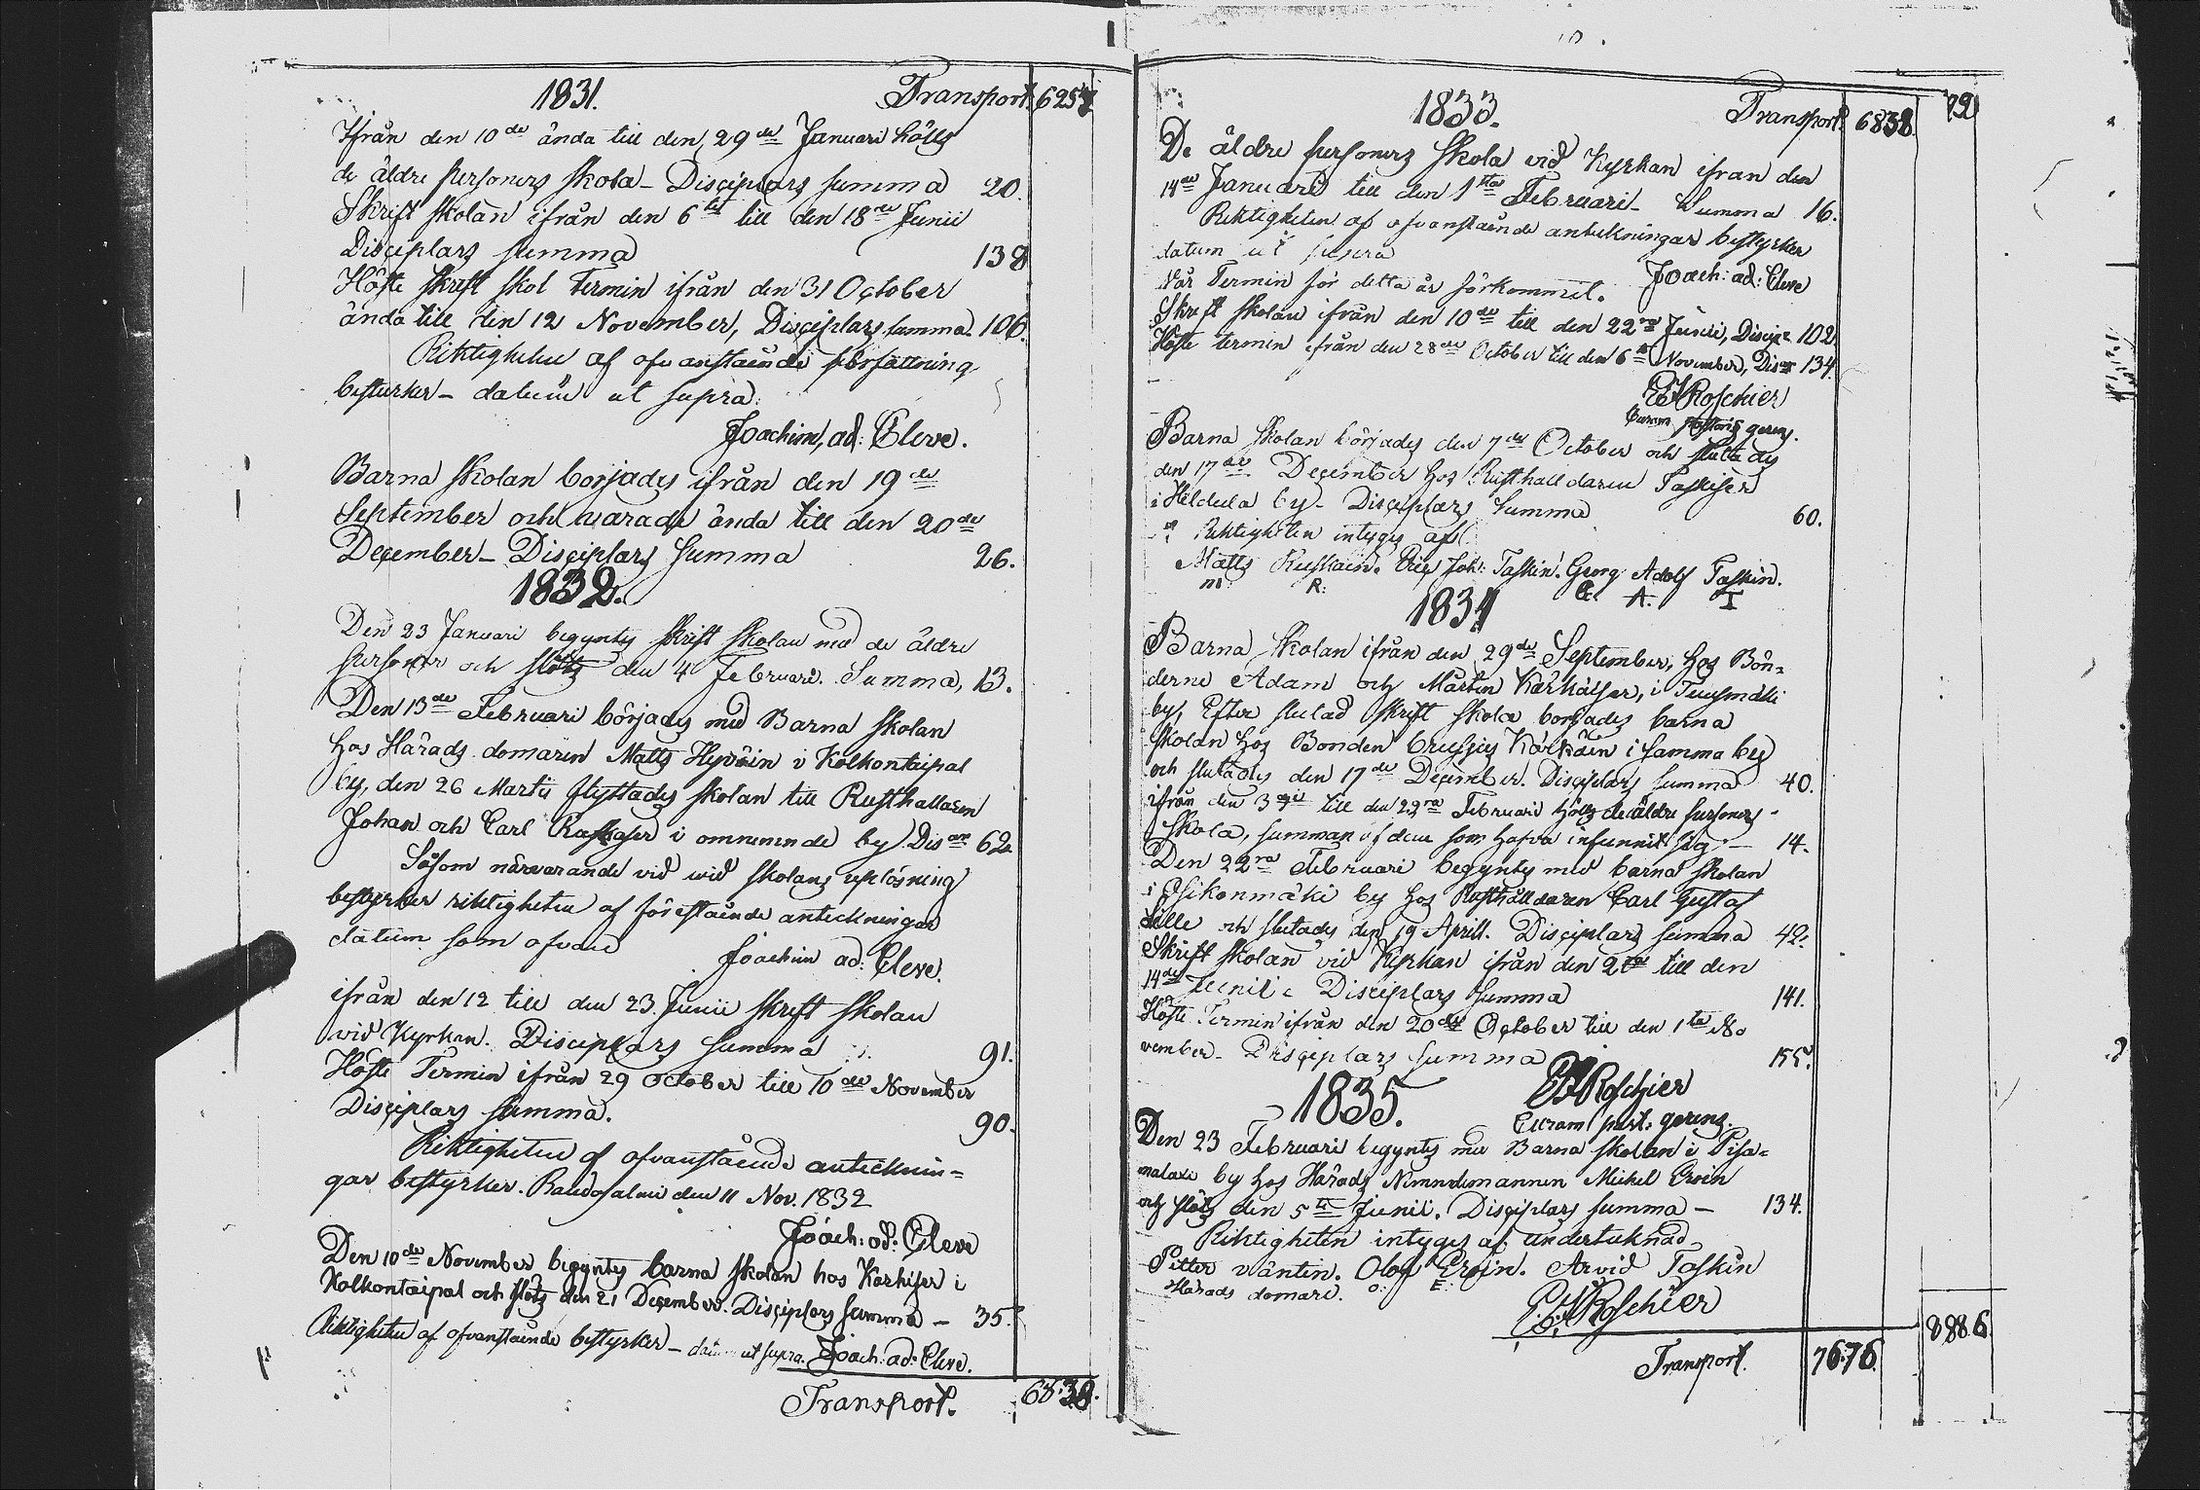 1831. Transport 6257
Ifrån den 10de ända till den 29de Januari hölts
de äldre personers skola – Disciplars summa 20.
Skrift skolan ifrån den 6te till den 18de Junii
Disciplars summa 138
Höste skrift skol Termin ifrån den 31 October
ända till den 12 November, Disciplars summa. 106.
Riktigheten af ofvanstående författning
bestyrker – datum ut supra.
Joachim, ad: Cleve.
Barna skolan borjades ifrån den 19de
September och warade ända till den 20de
December – Disciplars Summa 26.
1832.
Den 23 Januari begyntes skrift skolan med de äldre
personer och slöts den 4 Februari. Summa, 13.
Den 13de Februari börjades med Barna skolan
hos Härads domaren Matts Hyväin i Kolkontaipal
by, den 26 Martii flyttades skolan till Rusthallaren
Johan och Carl i omnemnde by Disar 62.
Såsom närvarande vid wid skolans uplösning
bestyrker riktigheten af förestående anteckningar
datum som ofvan Joachim ad: Cleve.
ifrån den 12 till den 23 Junii skrift skolan
vid Kyrkan. Disciplars summa 91.
Höste Termin ifrån 29 October till 10de November
Disciplars summa. 90.
Riktigheten af ofvanstående antecknin=
gar bestyrker. Randasalmi den 11 Nov. 1832
Joach: ad: Cleve
Den 10de November begyntes barna skolan hos Karhiser i
Kolkontaipal och slöts den 21 December. Disciplars summa – 35.
Riktigheten af ofvanstående bestyrker – datum ut supra. Joach: ad: Cleve.
Transport. 6838.
1833. Transport. 6838. 792
De äldre personers skola vid Kyrkan ifran den
14de Januari till den 1sta Februari – Summa 16.
Riktigheten af ofvanstående antekningar bestyrker
datum ut supra Joach: ad: Cleve
Vår Termin för detta år förkommit.
Skrift skolan ifrån den 10de till den 22ra Junii, Discip: 102
Höste termin ifrån den 28de October till den 6te November, Disar 134.
Roschier
Curam pastoris gerens.
Barna skolan börjades den 7de October och slutades
den 17de December hos Rusthalldaren Taskiser
i Heldula by – Disciplars Summa 60.
Riktigheten intyges af:
Matts Ruskain. Eric Joh: Taskin. Georg Adolf Taskin.
m R. G. A. T
1834
Barna skolan ifrån den 29de September, hos Bön=
derne Adam och Mårten Kärkäiser, i Tuusmäki
by, Efter slutad skrift skola borjades barna
skolan hos Bonden Kärkäin i samma by
och slutades den 17de December. Disciplars summa 40.
ifrån den 3die till den 22ra Februari hölts de äldre personers
skola, summan af dem som hafva infunnit sig – 14.
Den 22ra Februari begyntes med barna skolan
i Osikonmäki by hos Rusthålldaren Carl Gustaf
och slutades den 19 Aprill. Disciplars summa 42.
Skrift skolan vid Kyrkan ifrån den 2dra till den
14de Junii: Disciplars summa 141.
Höste Termin ifrån den 20de October till den 1sta No
vember – Disciplars summa 155.
1835. Roschier
Curam past: gerens.
Den 23 Februari begyntes med Barna skolan i Pisa=
malaxi by hos Härads Nemndemannen Michel Eroin
och slöts den 5te Junii. Disciplars summa – 134.
Riktigheten intyges af undertecknad
Pitter väntin. Olof Eroin. Arvid Taskin
Härads domare. O: E:
Roschier
Transport. 7676. 8886